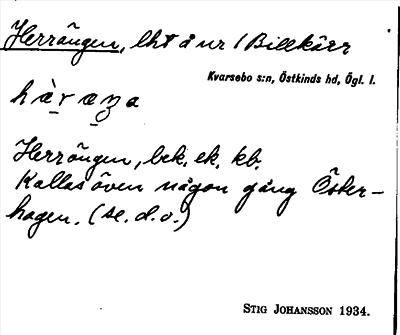 Herrängen, lht å nr 1 Billkärr
Kvarsebo s:n, Östkinds hd, Ögl. l.
hæ̀ræŋa
Herrängen, bek. ek. kb.
Kallas även någon gång Öster-
hagen. (se. d. o.)
STIG JOHANSSON 1934.